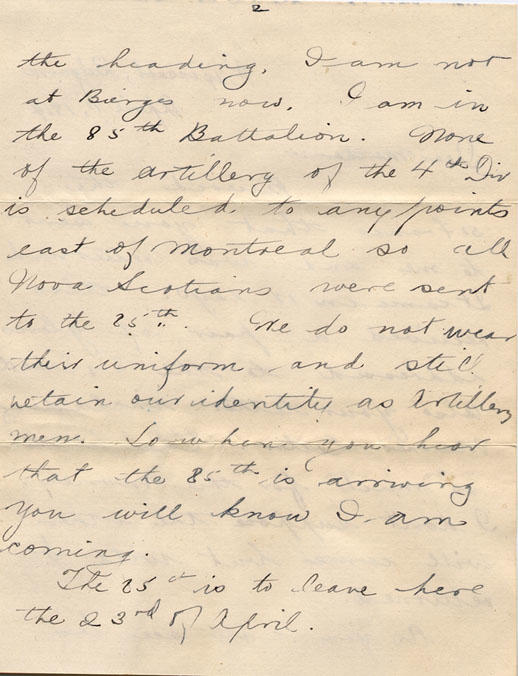 2
the heading. I am not
at Bierges now. I am in
the 85th Battalion. None
of the artillery of the 4th Div
is scheduled to any points
east of Montreal so all
Nova Scotians were sent
to the 25th. We do not wear
their uniform and still
retain our identity as Artillery
men. So when you hear
that the 85th is arriving
you will know I am
coming.
The 25th is to leave here
the 23rd of April.